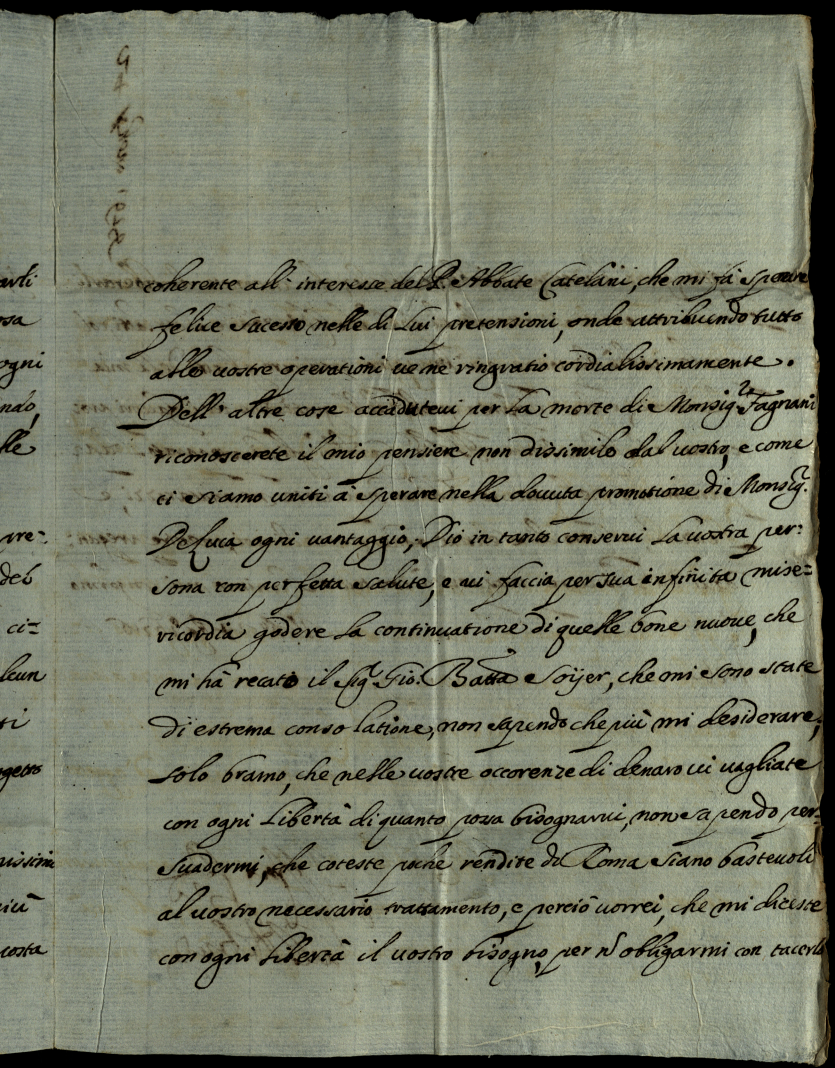 coherente all' interesse del P. Abbate Catelani, che mi fà sperare
felice sucesso nelle di Lui pretensioni, onde attribuendo tutto
alle vostre operationi ve ne ringratio cordialissimamente.
Dell' altre cose accadutevi per la morte di Monsig.re Fagnani
riconoscerete il mio pensiere non dissimile dal vostro, e come
ci siamo uniti à sperare nella dovuta promotione di Monsig.
De Luca ogni vantaggio, Dio in tanto conservi la vostra per:
sona con perfetta salute, e vi faccia per sua infinita mise=
ricordia godere la continuatione di quelle bone nuove, che
mi hà recato il Sig. Gio. Batta Soijer, che mi sono state
di estrema consolatione, non sapendo che più mi desiderare,
solo bramo, che nelle vostre occorenze di denaro vi vagliate
con ogni Libertà di quanto possa bisognarvi, non sapendo per:
suadermi, che coteste poche rendite di Roma siano bastevoli
al vostro necessario trattamento, e perciò vorrei, che mi diceste
con ogni libertà il vostro bisogno, per n obligarmi con tacerlo
arli
osa
ogni
ndo,
lle
pre=
dei
ci=
leun
ti
getto
nissime
più
vosta